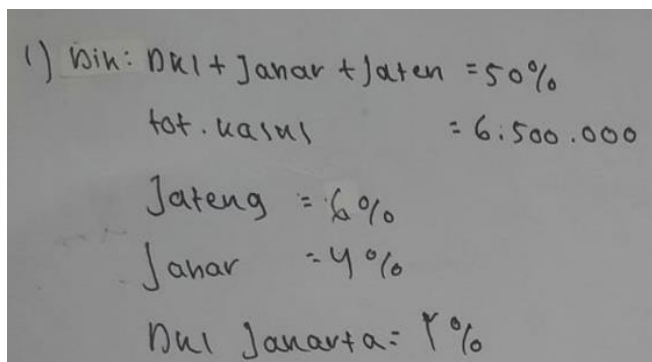 1) Dik: DKI + Jabar + Jaten = 50%
tot. kasus = 6.500.000
Jateng = 6%
Jabar = 4%
DKI Jakarta = %